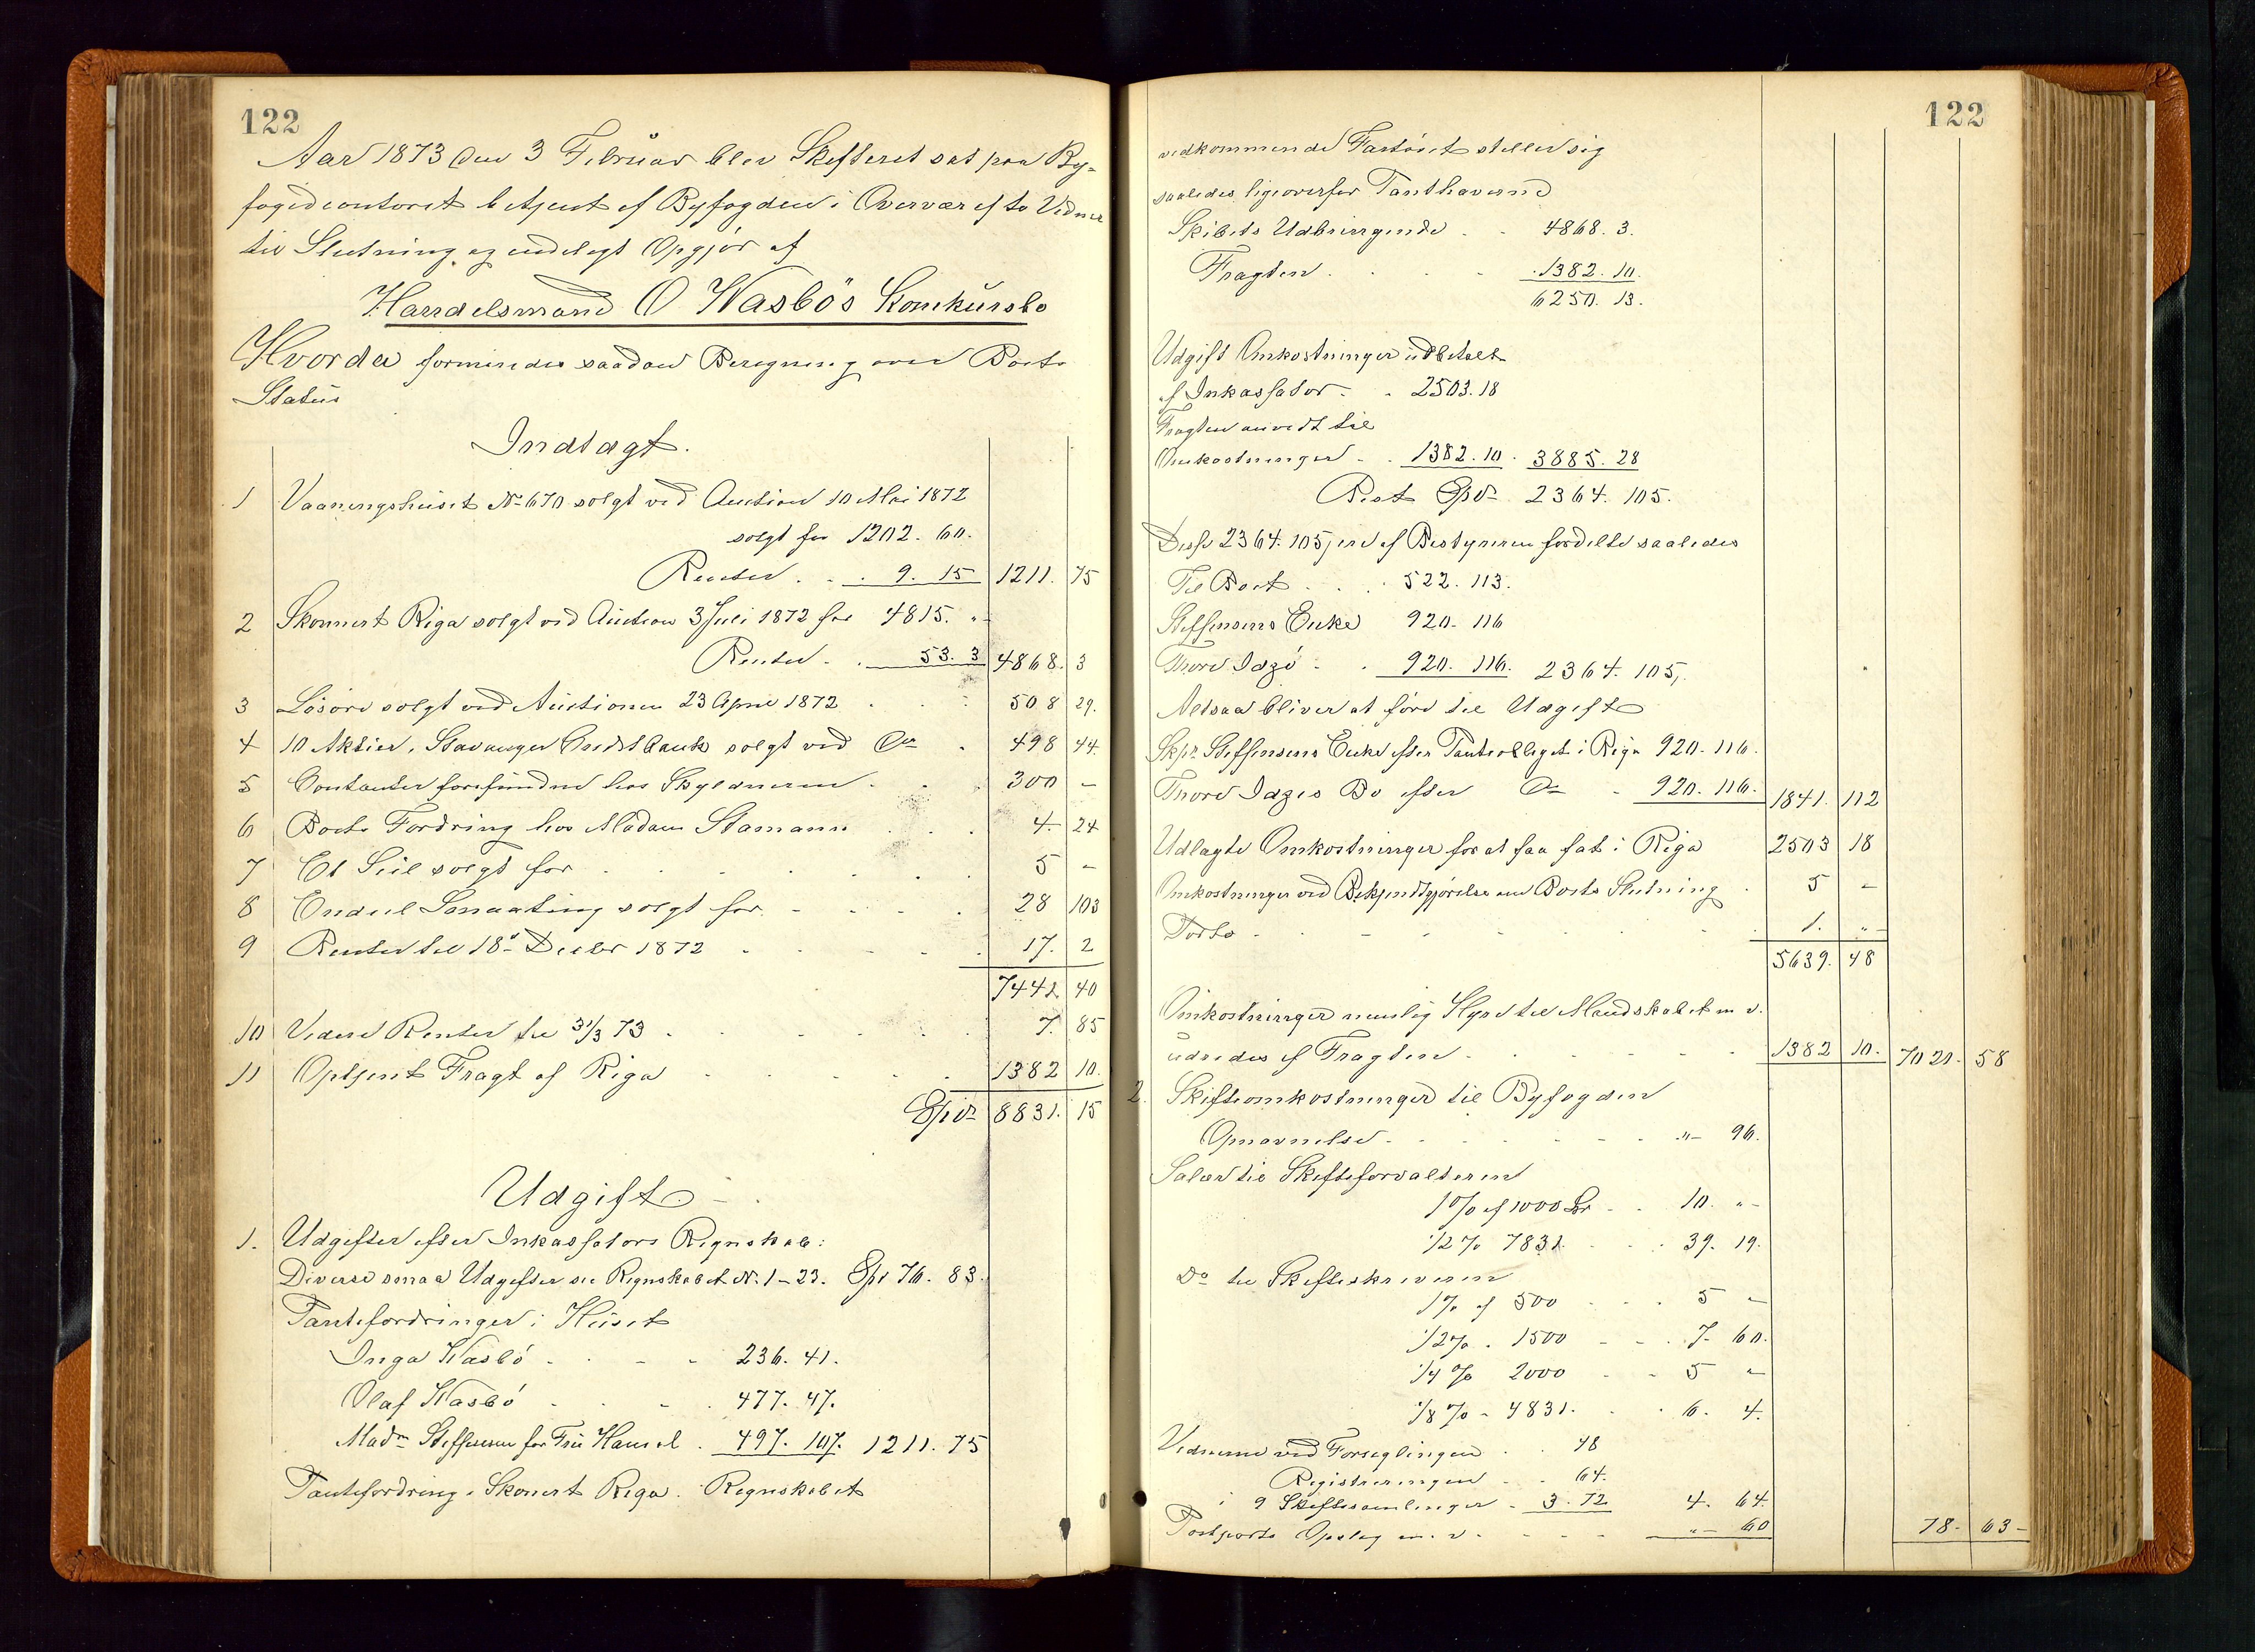 122
Aar 1873 den 3 Februar blev Skifteret sat paa By-
fogedcontoret betjent af Byfogden i Overvær af to Vidner
til Slutning og endeligt Opgjør af
Handelsmand O Wasbøs Konkursbo
Hvorda formeredes saadan Beregning over Boets
Status
Indtægt.
1 Vaaningshuset No 670 solgt ved Auction 10 Mai 1872
solgt for 1202. 60.
Renter . . 9. 15 1211. 75
2 Skonnert Riga solgt ved Auction 3 Juli 1872 for 4815. "-
Renter . . 53. 3 4868. 3
3 Løsøre solgt ved Auctionen 23 April 1872 . . 508 29.
4 10 Aktier i Stavanger Creditbank solgt ved Do . 498 44
5 Contanter forefundne hos Skyldneren . . 300 -
6 Boets Fordring hos Madam Stamann . . . 4. 24
7 Et Seil solgt for . . . . . . 5 -
8 En deel solgt for . . . . 28 103
9 Renter til 18de Decbr 1872 . . . . 17. 2
7442 40
10 Videre Renter til 31/3 73 . . . . . 7. 85
11 Optjent Fragt af Riga . . . . . 1382 10.
Spdr 8831. 15
Udgift.
1. Udgifter efter Inkassators Regnskab:
Diverse smaa Udgifter se Regnskabet No. 1-23. Spd 76. 83.
Pantefordringer i Huset
Inga Wasbø . . . . 236. 41.
Olaf Wasbø . . . . 477. 47.
Madm Steffensen for 497. 107. 1211. 75
Pantefordring i Skonert Riga. Regnskabet
122
vedkommende Fartøiet stiller sig
saaledes ligeoverfor Panthaverne
Skibets Udbringende . . 4868. 3.
Fragten . . . . 1382. 10.
6250. 13.
Udgift Omkostninger udbetalt
af Inkassator . . 2503. 18
Fragten anvendt til
Omkostninger . . 1382. 10. 3885. 28
Rest Spdr 2364. 105.
Disse 2364. 105, ere af Bestyreren fordelte saaledes
Til Boet . . . 522. 113.
Steffensens Enke 920. 116
Thore Idsø . . 920. 116. 2364. 105,.
Altsaa bliver at føre til Udgift
Skpr Steffensens Enke efter Panteobligat. i Riga 920. 116.
Thore Idsøs Bo efter Do . 920. 116. 1841. 112
Udlagte Omkostninger for at faa fat i Riga 2503 18
Omkostninger ved Bekjendtgjørelse om Boets Slutning . 5 -
Porto . . . . . . . . 1. "-
5639. 48
Omkostninger nemlig Hyre til Mandskabet m v.
udredes af Fragten . . . . . . 1382 10. 7021. 58
2. Skifteomkostninger til Byfogden
Opnævnelse . . . . . . "- 96.
Salær til Skifteforvalteren
1 % af 1000 Spdr . . 10. "-
1/2 % 7831 . . . 39. 19.
Do til Skifteskriveren
1 % af 500 . . . 5 -
1/2 % . 1500 . . . 7. 60.
1/4 % 2000 . . 5 "
1/8 % . 4831. . . 6. 4.
Vidnerne ved Forseglingen . . 48
Registreringen . . 64.
i 9 Skiftesamlinger . 3. 72 4. 64.
Postporto Opslag m. v. . . . . "- 60 78. 63-